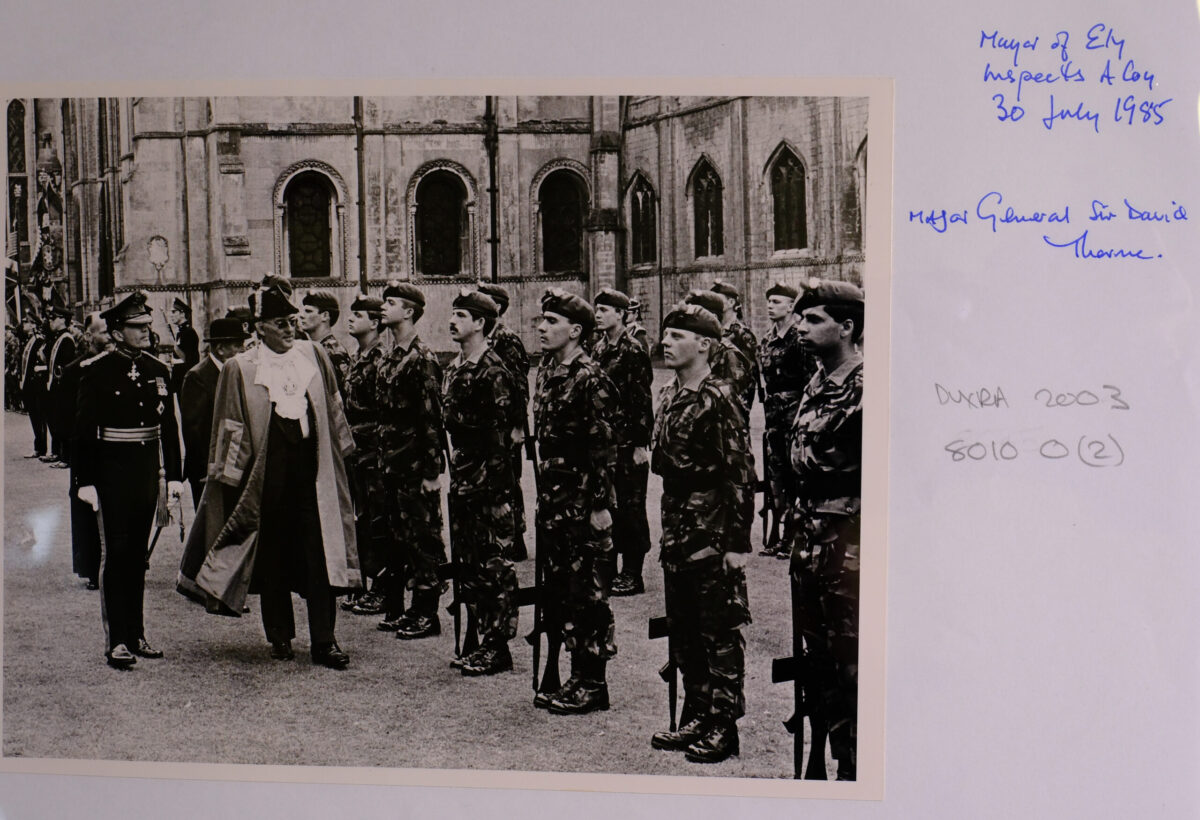 Mayor of Ely
Inspects A Coy.
30 July 1985
Major General Sir David
Thorne.
DXRA 2003
8010 0(2)